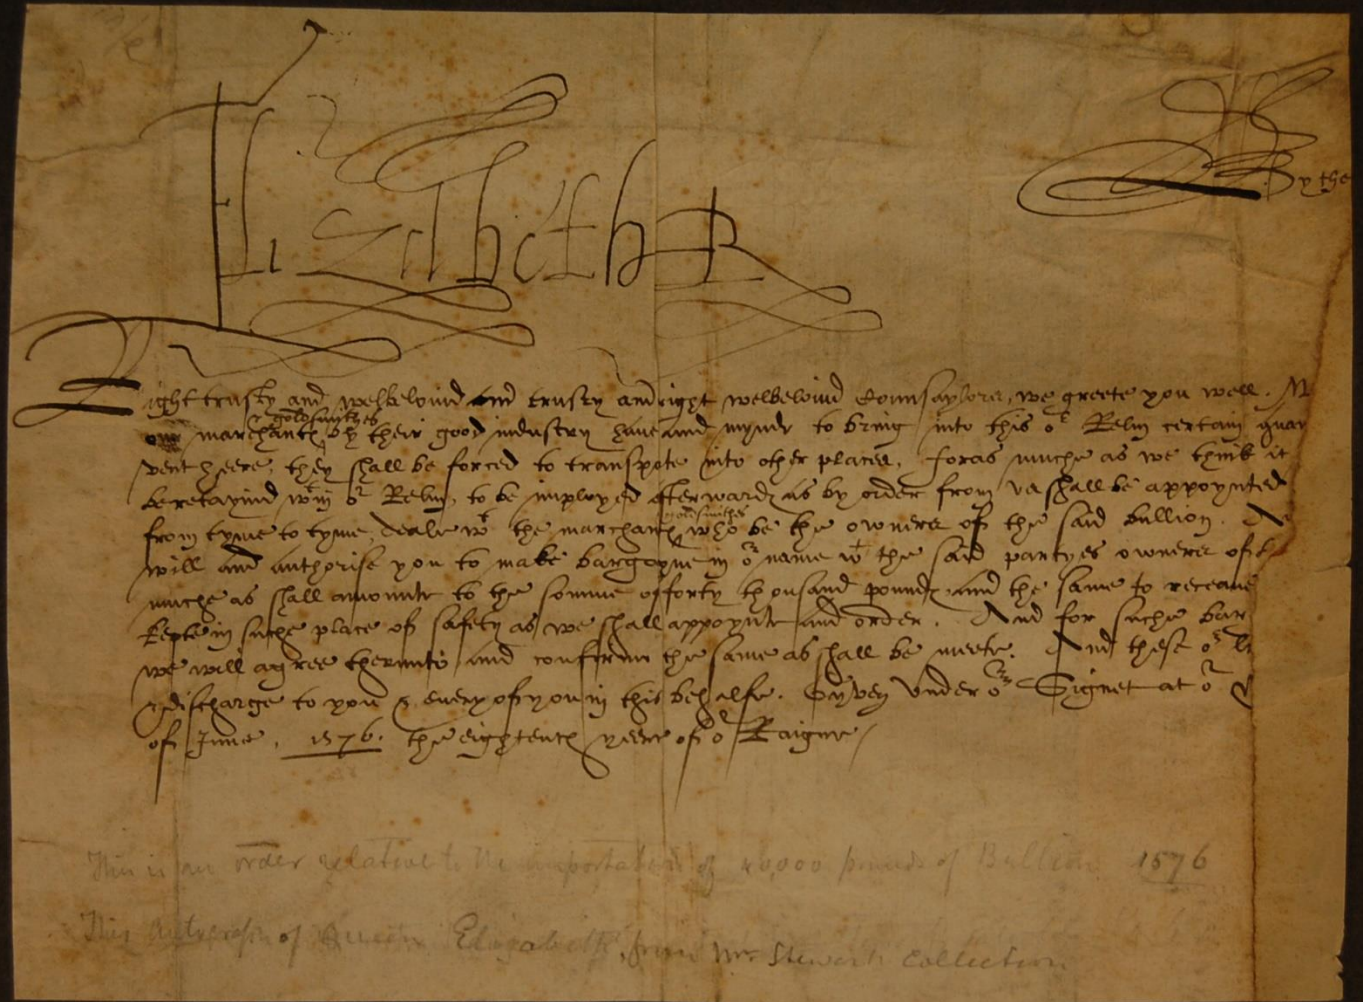 Elizabeth R
By the
Right trusty and welbelovid and trusty and right welbelovid Counsaylors, we greete you well.
goldsmithes
our marchants by their good industry have and mynde to bring into this or Relm certain
vent heere, they shall be forced to transporte into other places. forasmuche as we think it
be retaynid wtin or Relm, to be imployed afterwards as by order from us shall be appoynted
goldsmithes
from tyme to tyme, deale wt the marchants who be the owners of the said bullion.
will and authorise you to make bargayne in or name wt the said partyes owners of
muche as shall amounte to the somme of forty thousand pounds and the same to receave
kepte in suche place of safety as we shall appoynte and order. And for suche bar
we will agree therunto and confirme the same as shall be meete. And these or
discharge to you & every of you in this behalfe. Gyven under or Signet at or
of June. 1576. the eightenth yeere of or Raigne
This is an order relative to the importation of 40,000 pounds of Bullion 1576
This Autograph of Queen Elizabeth, from Mr Stewarts Collection